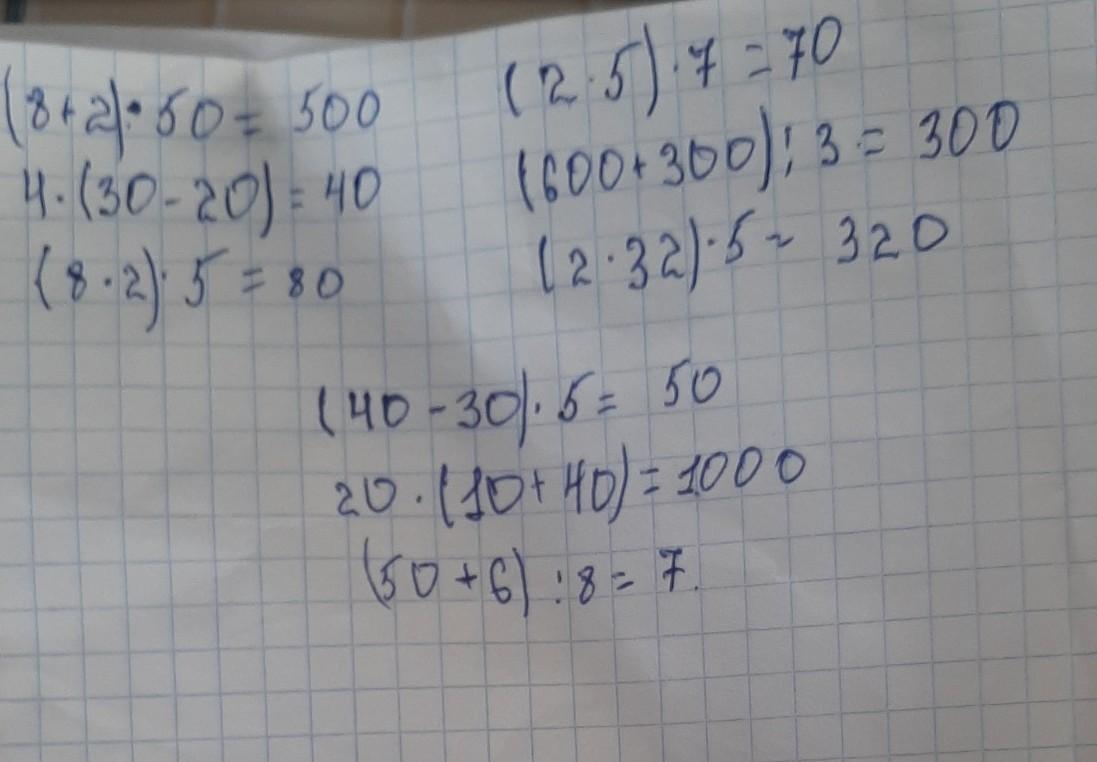 (8+2)·50 = 500
4·(30-20) = 40
(8·2)·5 = 80
(2·5)·7 = 70
(600+300):3 = 300
(2·32)·5 = 320
(40-30)·5 = 50
20·(10+40) = 1000
(50+6):8 = 7.